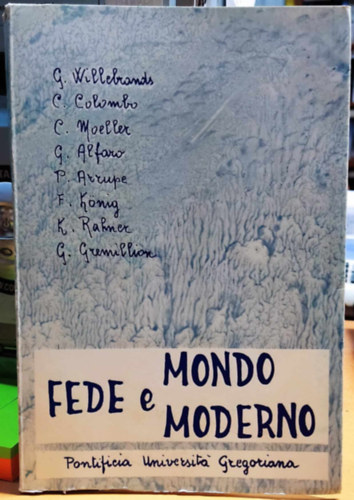 G. Willebrands
C. Colombo
C. Moeller
G. Alfaro
P. Arrupe
F. König
K. Rahner
G. Gremillion
FEDE e MONDO MODERNO
Pontificia Università Gregoriana